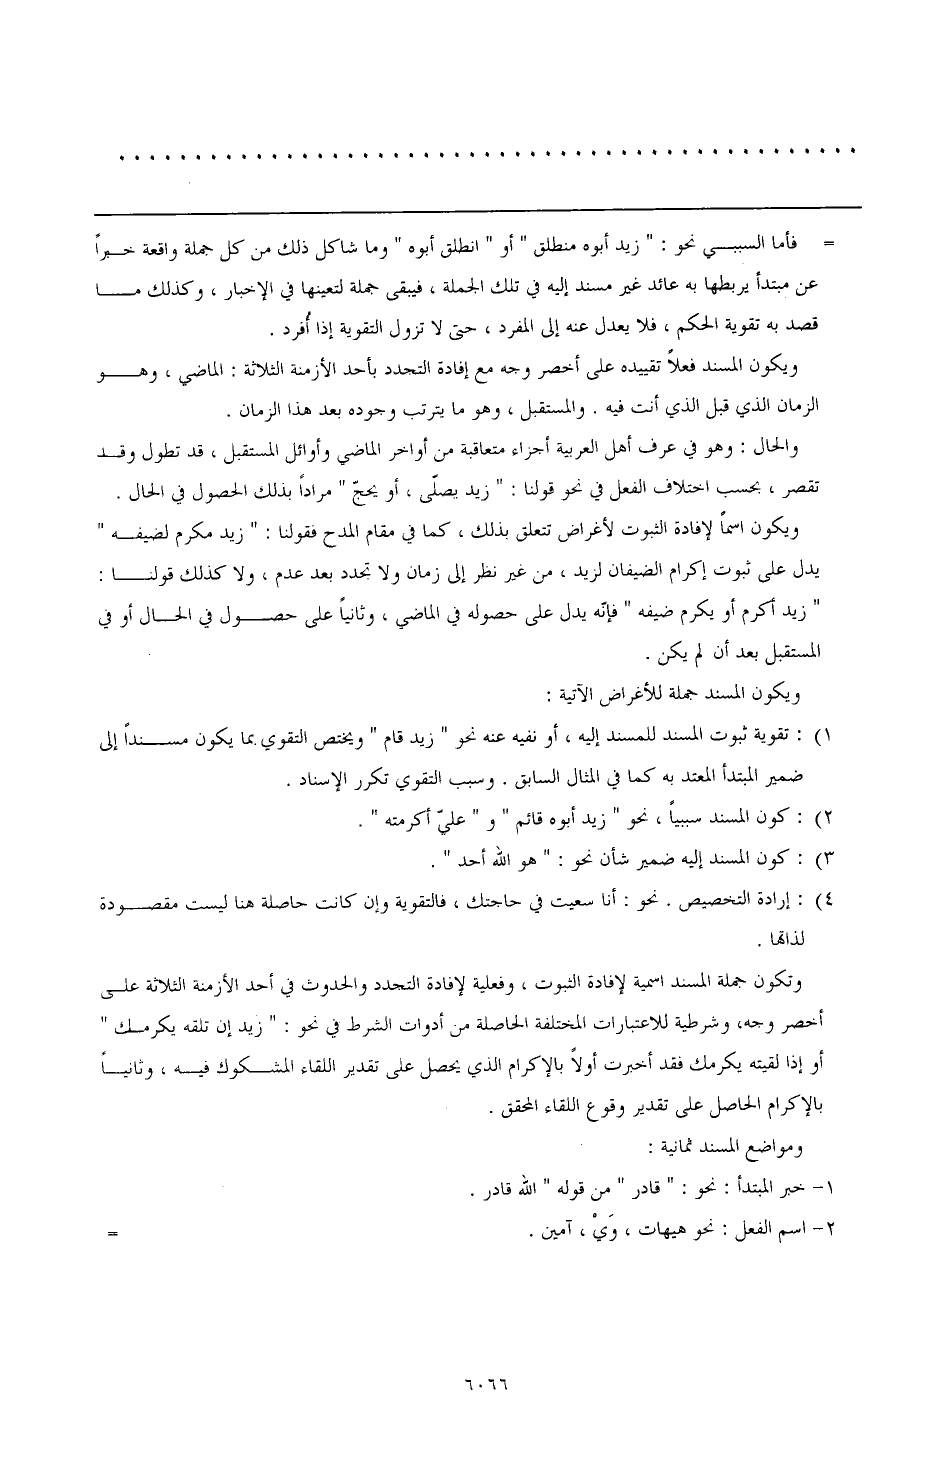 = فأما السببي نحو : " زيد أبوه منطلق " أو " انطلق أبوه " وما شاكل ذلك من كل جملة واقعة خبراً
عن مبتدأ يربطها به عائد غير مسند إليه في تلك الجملة ، فيبقى جملة لتعينها في الإخبار ، وكذلك ما
قصد به تقوية الحكم ، فلا يعدل عنه إلى المفرد ، حتى لا تزول التقوية إذا أُفرد .
ويكون المسند فعلاً تقييده على أخصر وجه مع إفادة التجدد بأحد الأزمنة الثلاثة : الماضي ، وهو
الزمان الذي قبل الذي أنت فيه . والمستقبل ، وهو ما يترتب وجوده بعد هذا الزمان .
والحال : وهو في عرف أهل العربية أجزاء متعاقبة من أواخر الماضي وأوائل المستقبل ، قد تطول وقد
تقصر ، بحسب اختلاف الفعل في نحو قولنا : " زيد يصلّى ، أو يحجّ " مراداً بذلك الحصول في الحال .
ويكون اسماً لإفادة الثبوت لأغراض تتعلق بذلك ، كما في مقام المدح فقولنا : " زيد مكرم لضيفه "
يدل على ثبوت إكرام الضيفان لزيد ، من غير نظر إلى زمان ولا تجدد بعد عدم ، ولا كذلك قولنا :
" زيد أكرم أو يكرم ضيفه " فإنّه يدل على حصوله في الماضي ، وثانياً على حصول في الحال أو في
المستقبل بعد أن لم يكن .
ويكون المسند جملة للأغراض الآتية :
١) : تقوية ثبوت المسند للمسند إليه ، أو نفيه عنه نحو " زيد قام " ويختص التقوي بما يكون مسنداً إلى
ضمير المبتدأ المعتد به كما في المثال السابق . وسبب التقوي تكرر الإسناد .
٢) : كون المسند سببياً ، نحو " زيد أبوه قائم " و " عليّ أكرمته " .
٣) : كون المسند إليه ضمير شأن نحو : " هو الله أحد " .
٤) : إرادة التخصيص . نحو : أنا سعيت في حاجتك ، فالتقوية وإن كانت حاصلة هنا ليست مقصودة
لذاتها .
وتكون جملة المسند اسمية لإفادة الثبوت ، وفعلية لإفادة التجدد والحدوث في أحد الأزمنة الثلاثة على
أخصر وجه، وشرطية للاعتبارات المختلفة الحاصلة من أدوات الشرط في نحو : " زيد إن تلقه يكرمك "
أو إذا لقيته يكرمك فقد أخبرت أولاً بالإكرام الذي يحصل على تقدير اللقاء المشكوك فيه ، وثانياً
بالإكرام الحاصل على تقدير وقوع اللقاء المحقق .
ومواضع المسند ثمانية :
١- خبر المبتدأ : نحو : " قادر " من قوله " الله قادر .
٢- اسم الفعل : نحو هيهات ، وَيْ ، آمين . =
٦٠٦٦